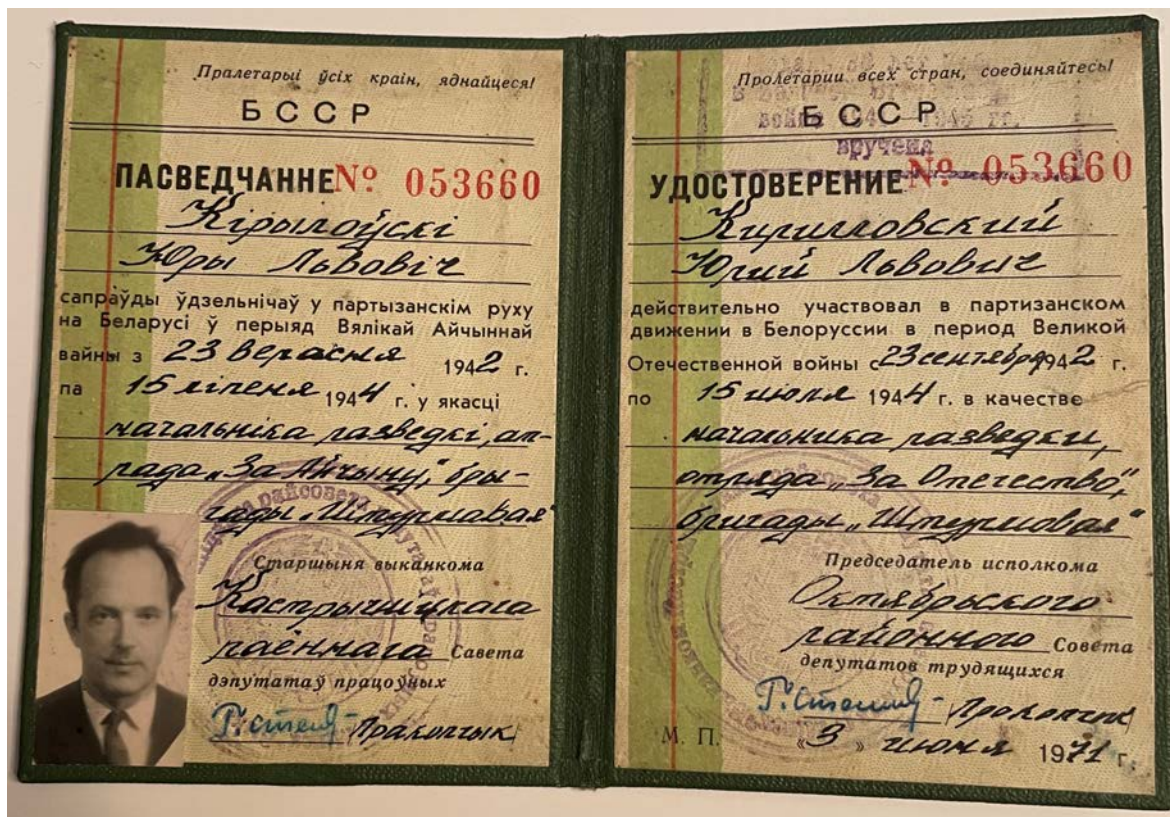 Пралетарыі ўсіх краін, яднайцеся!
БССР
ПАСВЕДЧАННЕ № 053660
Кірылоўскі
Юры Львовіч
сапраўды ўдзельнічаў у партызанскім руху
на Беларусі ў перыяд Вялікай Айчыннай
вайны з 23 верасня 1942 г.
па 15 ліпеня 1944 г. у якасці
начальніка разведкі, ат-
рада „За Айчыну", бры-
гады „Штурмавая"
Старшыня выканкома
Кастрычніцкага
раённага Савета
дэпутатаў працоўных
Пракопчык
Пролетарии всех стран, соединяйтесь!
БССР
вручена
УДОСТОВЕРЕНИЕ № 053660
Кирилловский
Юрий Львович
действительно участвовал в партизанском
движении в Белоруссии в период Великой
Отечественной войны с 23 сентября 1942 г.
по 15 июля 1944 г. в качестве
начальника разведки,
отряда „За Отечество",
бригады „Штурмовая"
Председатель исполкома
Октябрьского
районного Совета
депутатов трудящихся
Прокопчик
М. П. «3» июня 1971 г.